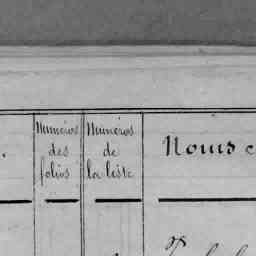 Numéros
des
folios
Numéros
de
la liste
Noms